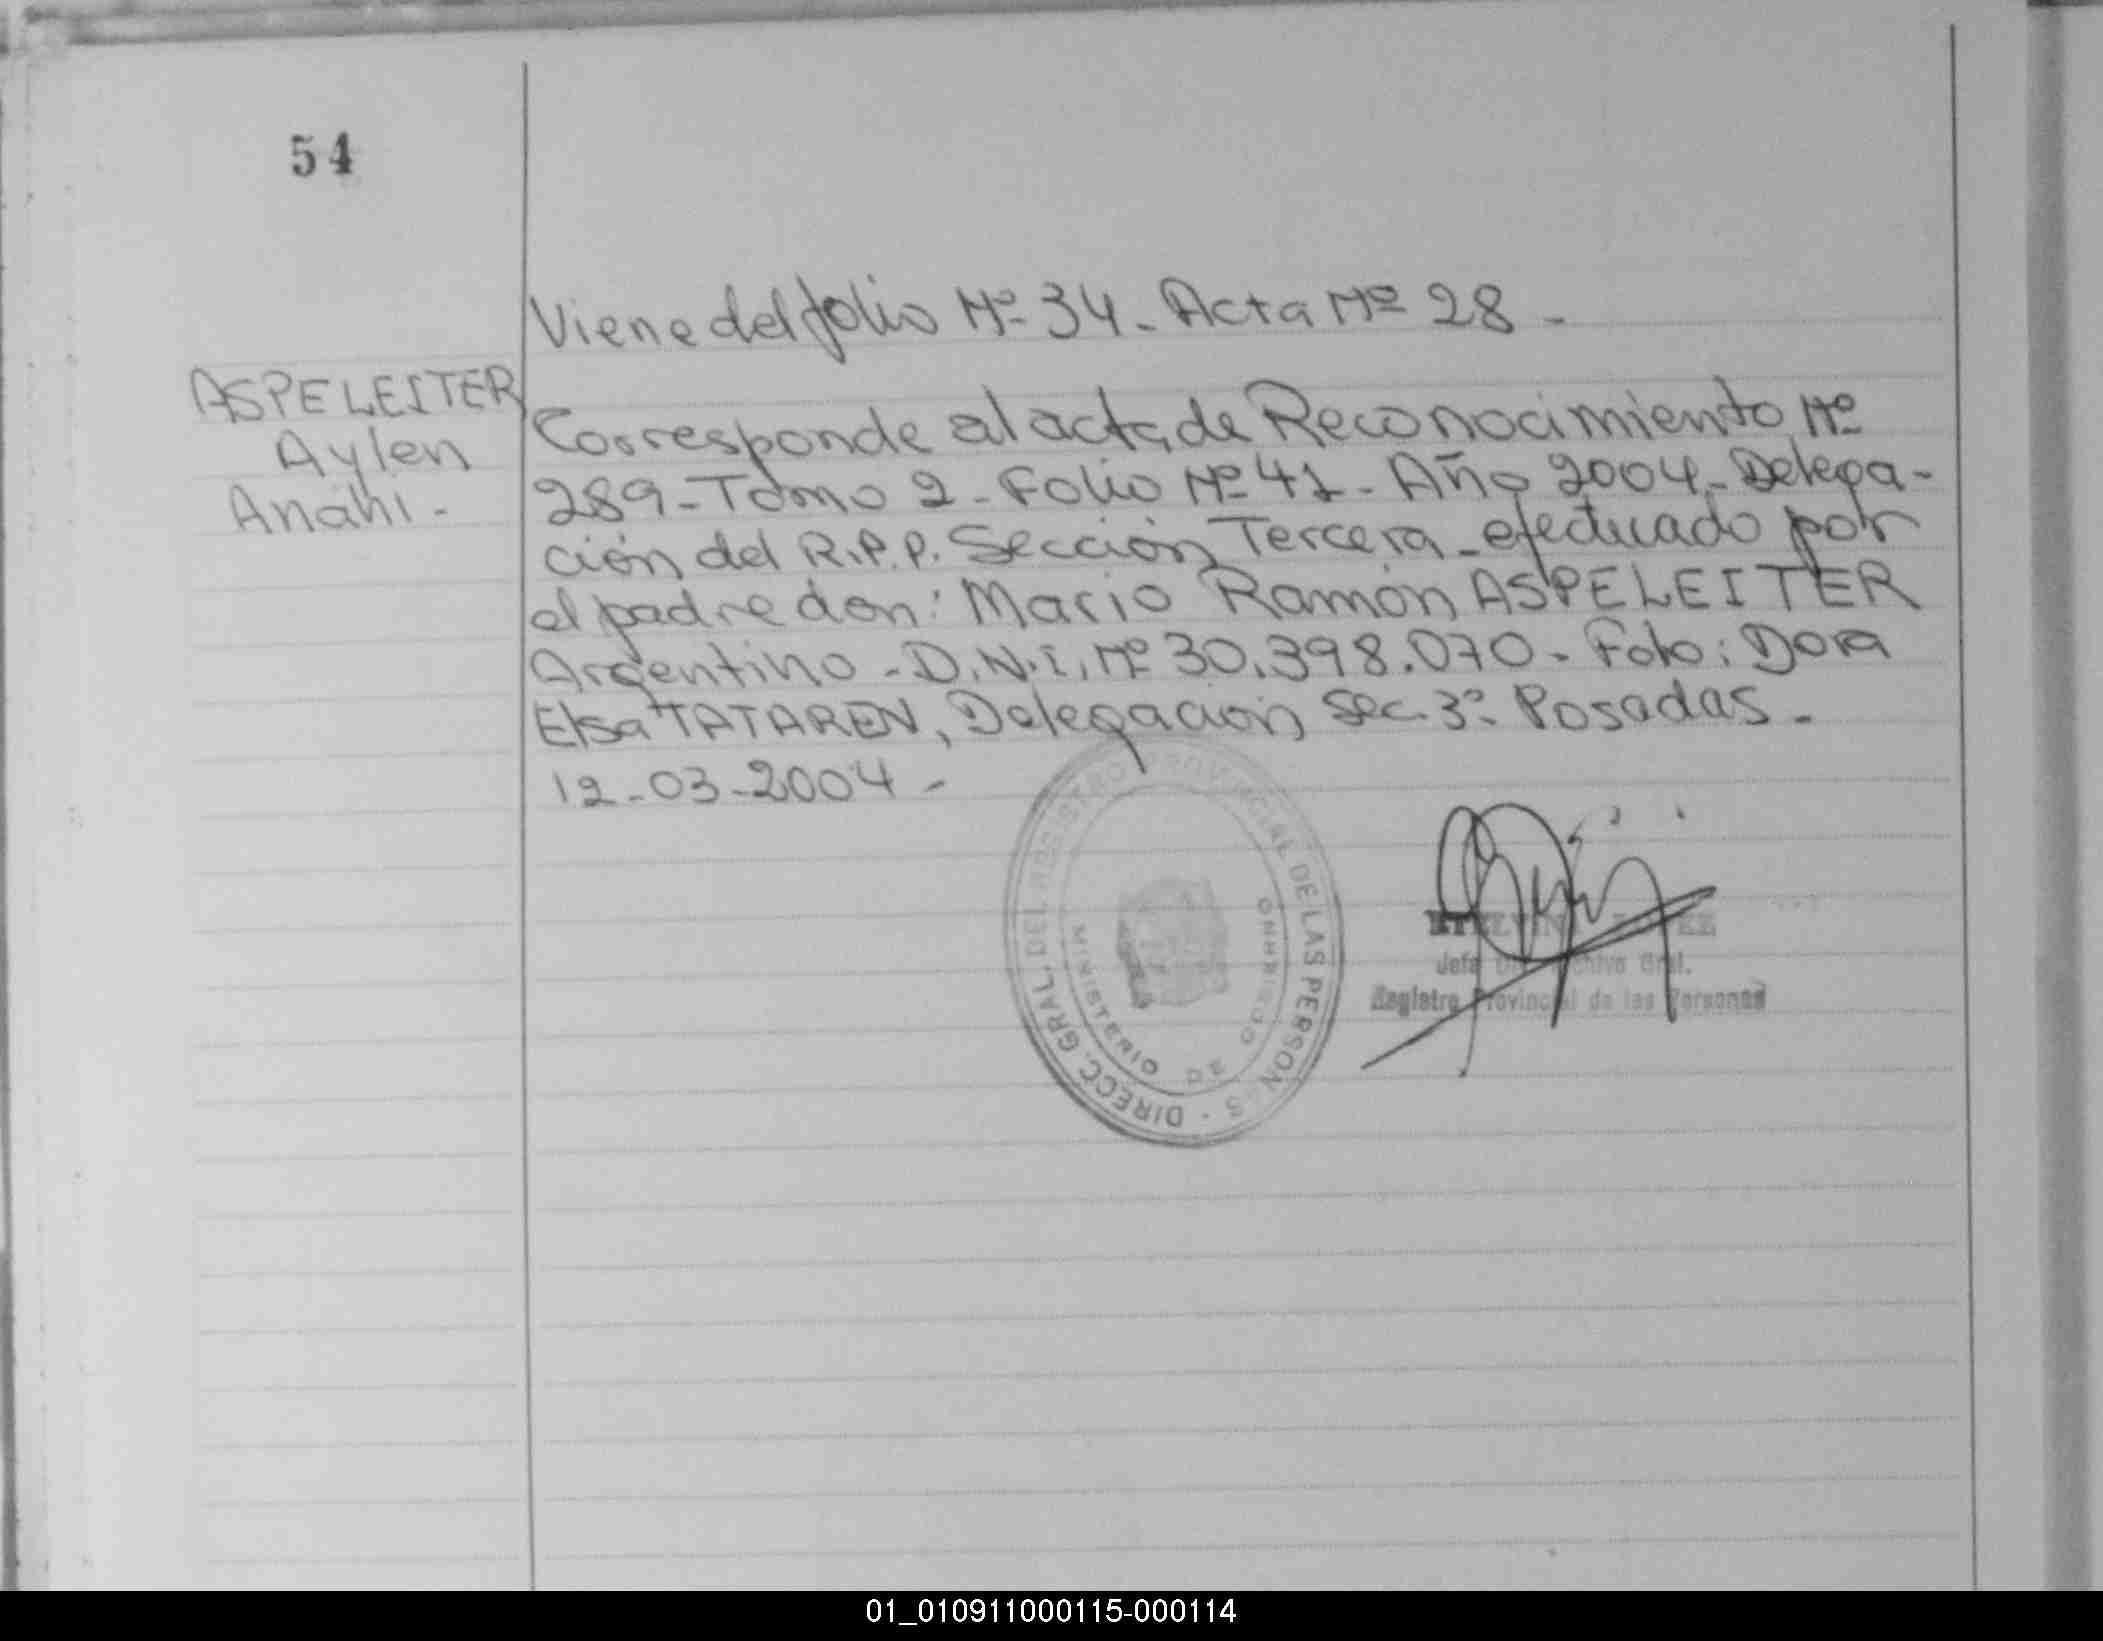 54
Viene del folio Nº 34 - Acta Nº 28 -
ASPELEITER
Aylen
Anahi -
Corresponde al acta de Reconocimiento Nº
289 - Tomo 2 - Folio Nº 41 - Año 2004 - Delega-
ción del R.P.P. Sección Tercera - efectuado por
el padre don: Mario Ramón ASPELEITER
Argentino - D.N.I. Nº 30.398.070 - Fdo: Dora
Elsa TATAREN, Delegación Sec. 3º Posadas -
12-03-2004 -
DIRECC. GRAL. DEL REGISTRO PROVINCIAL DE LAS PERSONAS -
MINISTERIO DE GOBIERNO
Jefa Gral.
Registro Provincial de las Personas
01_010911000115-000114